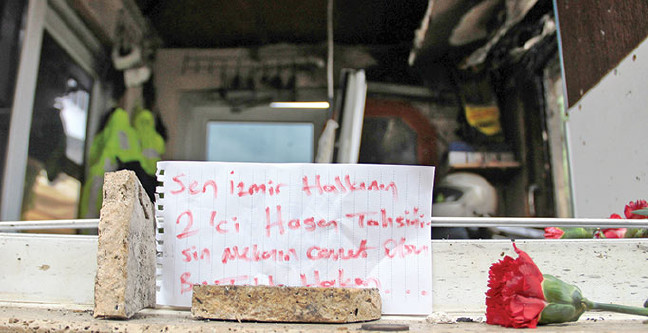 Sen izmir Halkının
2'ci Hasan Tahsini
sin mekanın cennet olsun
Hakan....